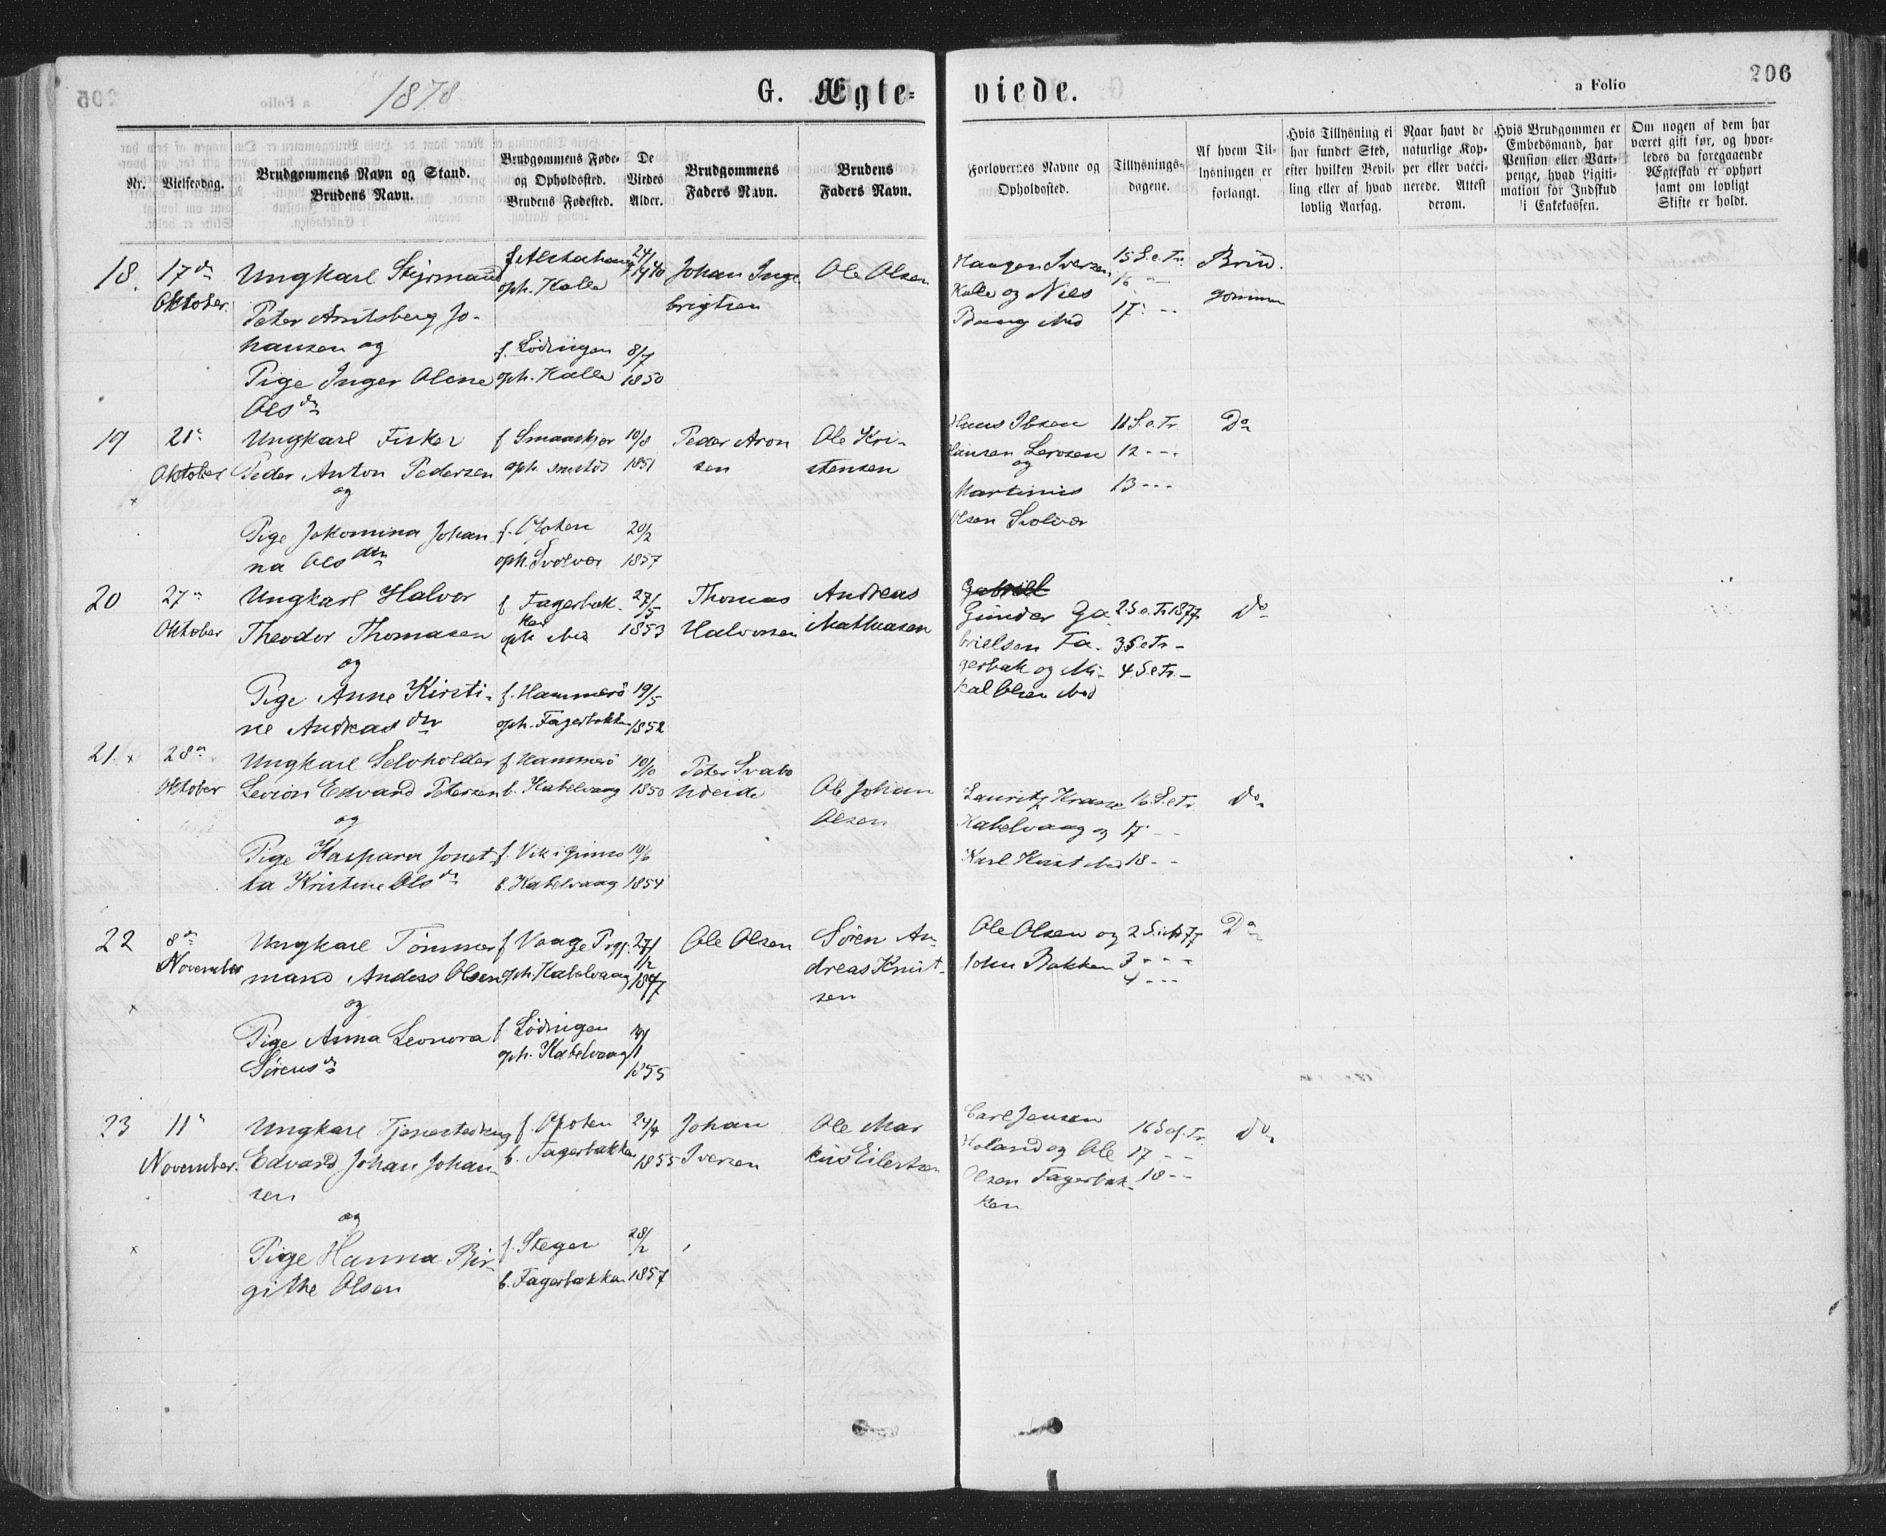 1878
G. Ægte-
viede.
a Folio
206
Nr.
Vielsesdag.
Brudgommens Navn og Stand.
Brudens Navn.
Brudgommens Føde-
og Opholdssted.
Brudens Fødested.
De
Viedes
Alder.
Brudgommens
Faders Navn.
Brudens
Faders Navn.
Forlovernes Navne og
Opholdssted.
Tillysnings-
dagene.
Af hvem Til-
lysningen er
forlangt.
Hvis Tillysning ei
har fundet Sted,
efter hvilken Bevil-
ling eller af hvad
lovlig Aarsag.
Naar havt de
naturlige Kop-
per eller vacci-
nerede. Attest
derom.
Hvis Brudgommen er
Embedsmand, har
Pension eller Vart-
penge, hvad Ligiti-
mation for Indskud
i Enkekassen.
Om nogen af dem har
været gift før, og hvor-
ledes da foregaaende
Ægteskab er ophørt
samt om lovligt
Skifte er holdt.
18.
17de
Oktober.
Ungkarl Styrmand
Peter Amtsberg Jo-
hansen og
Pige Inger Olene
Olsdtr
oph. Kalle
f. Lödingen
oph. Kalle
8/7
1850
Johan Inge
brigtsen
Ole Olsen
Haagen Iversen
Kalle og Niels
15 S. e. Tr.
16 - -
17 - -
Brud
gommen
19
21de
Oktober
Ungkarl Fisker
Peder Anton Pedersen
og
Pige Jakomina Johan
na Olsdtr
f Smaaskjær
10/8
1851
oph. Svolvær
20/2
1857
Peder Aron
sen
Ole Kri-
stensen
Hans Ibsen
og
Martinus
Olsen Svolvær
11 S. e. Tr.
12 - - -
13 - - -
Do
20
27de
Oktober
Ungkarl Halvor
Theodor Thomasen
og
Pige Anne Kirsti-
ne Andreasdtr
f Fagerbak-
ken
oph ibid
f. Hammerö
oph. Fagerbakken
27/5
1853
19/5
1852
Thomas
Halvorsen
Andreas
Mathiasen
Gabriel
Gunder Ga
brielsen Fa-
gerbak og Mi-
kal Olsen ibid
2 S. e. Tr. 1877
3 S. e. Tr. -
4 S. e. Tr. -
Do
21.
28de
Oktober
Ungkarl Selvholder
Edvard Petersen
og
Pige Kaspara Jonet-
ta Kristine Olsdtr
f Hammerö
b. Kabelvaag
f. Vik i Gimsö
b. Kabelvaag
1850
1854
Ole Johan
Olsen
Kabelvaag og
16 S. e. Tr.
17 - -
18 - -
Do
22
8de
November
Ungkarl Tömmer
mand Anders Olsen
og
Pige Anna Leonora
Sörensdtr
f Vaage Prgj.
oph. Kabelvaag
f. Lödingen
oph. Kabelvaag
27/12
1847
1855
Ole Olsen
Sören An-
dreas Knut-
sen
Ole Olsen og
John Bakken
3 - - -
4 - - -
Do
23
11te
November.
Ungkarl Tjenestedreng
Edvard Johan Johan-
sen
og
Pige Hanna Bir-
githe Olsen
f. Ofoten
b. Fagerbakken
f. Stegen
b. Fagerbakken
24/4
1855
28/2
1857
Johan
Iversen
Ole Mar
kus Eilertsen
Carl Jensen
Holand og Ole
Olsen Fagerbak-
ken
16 S. ef. Tr.
17 - -
18 - -
Do